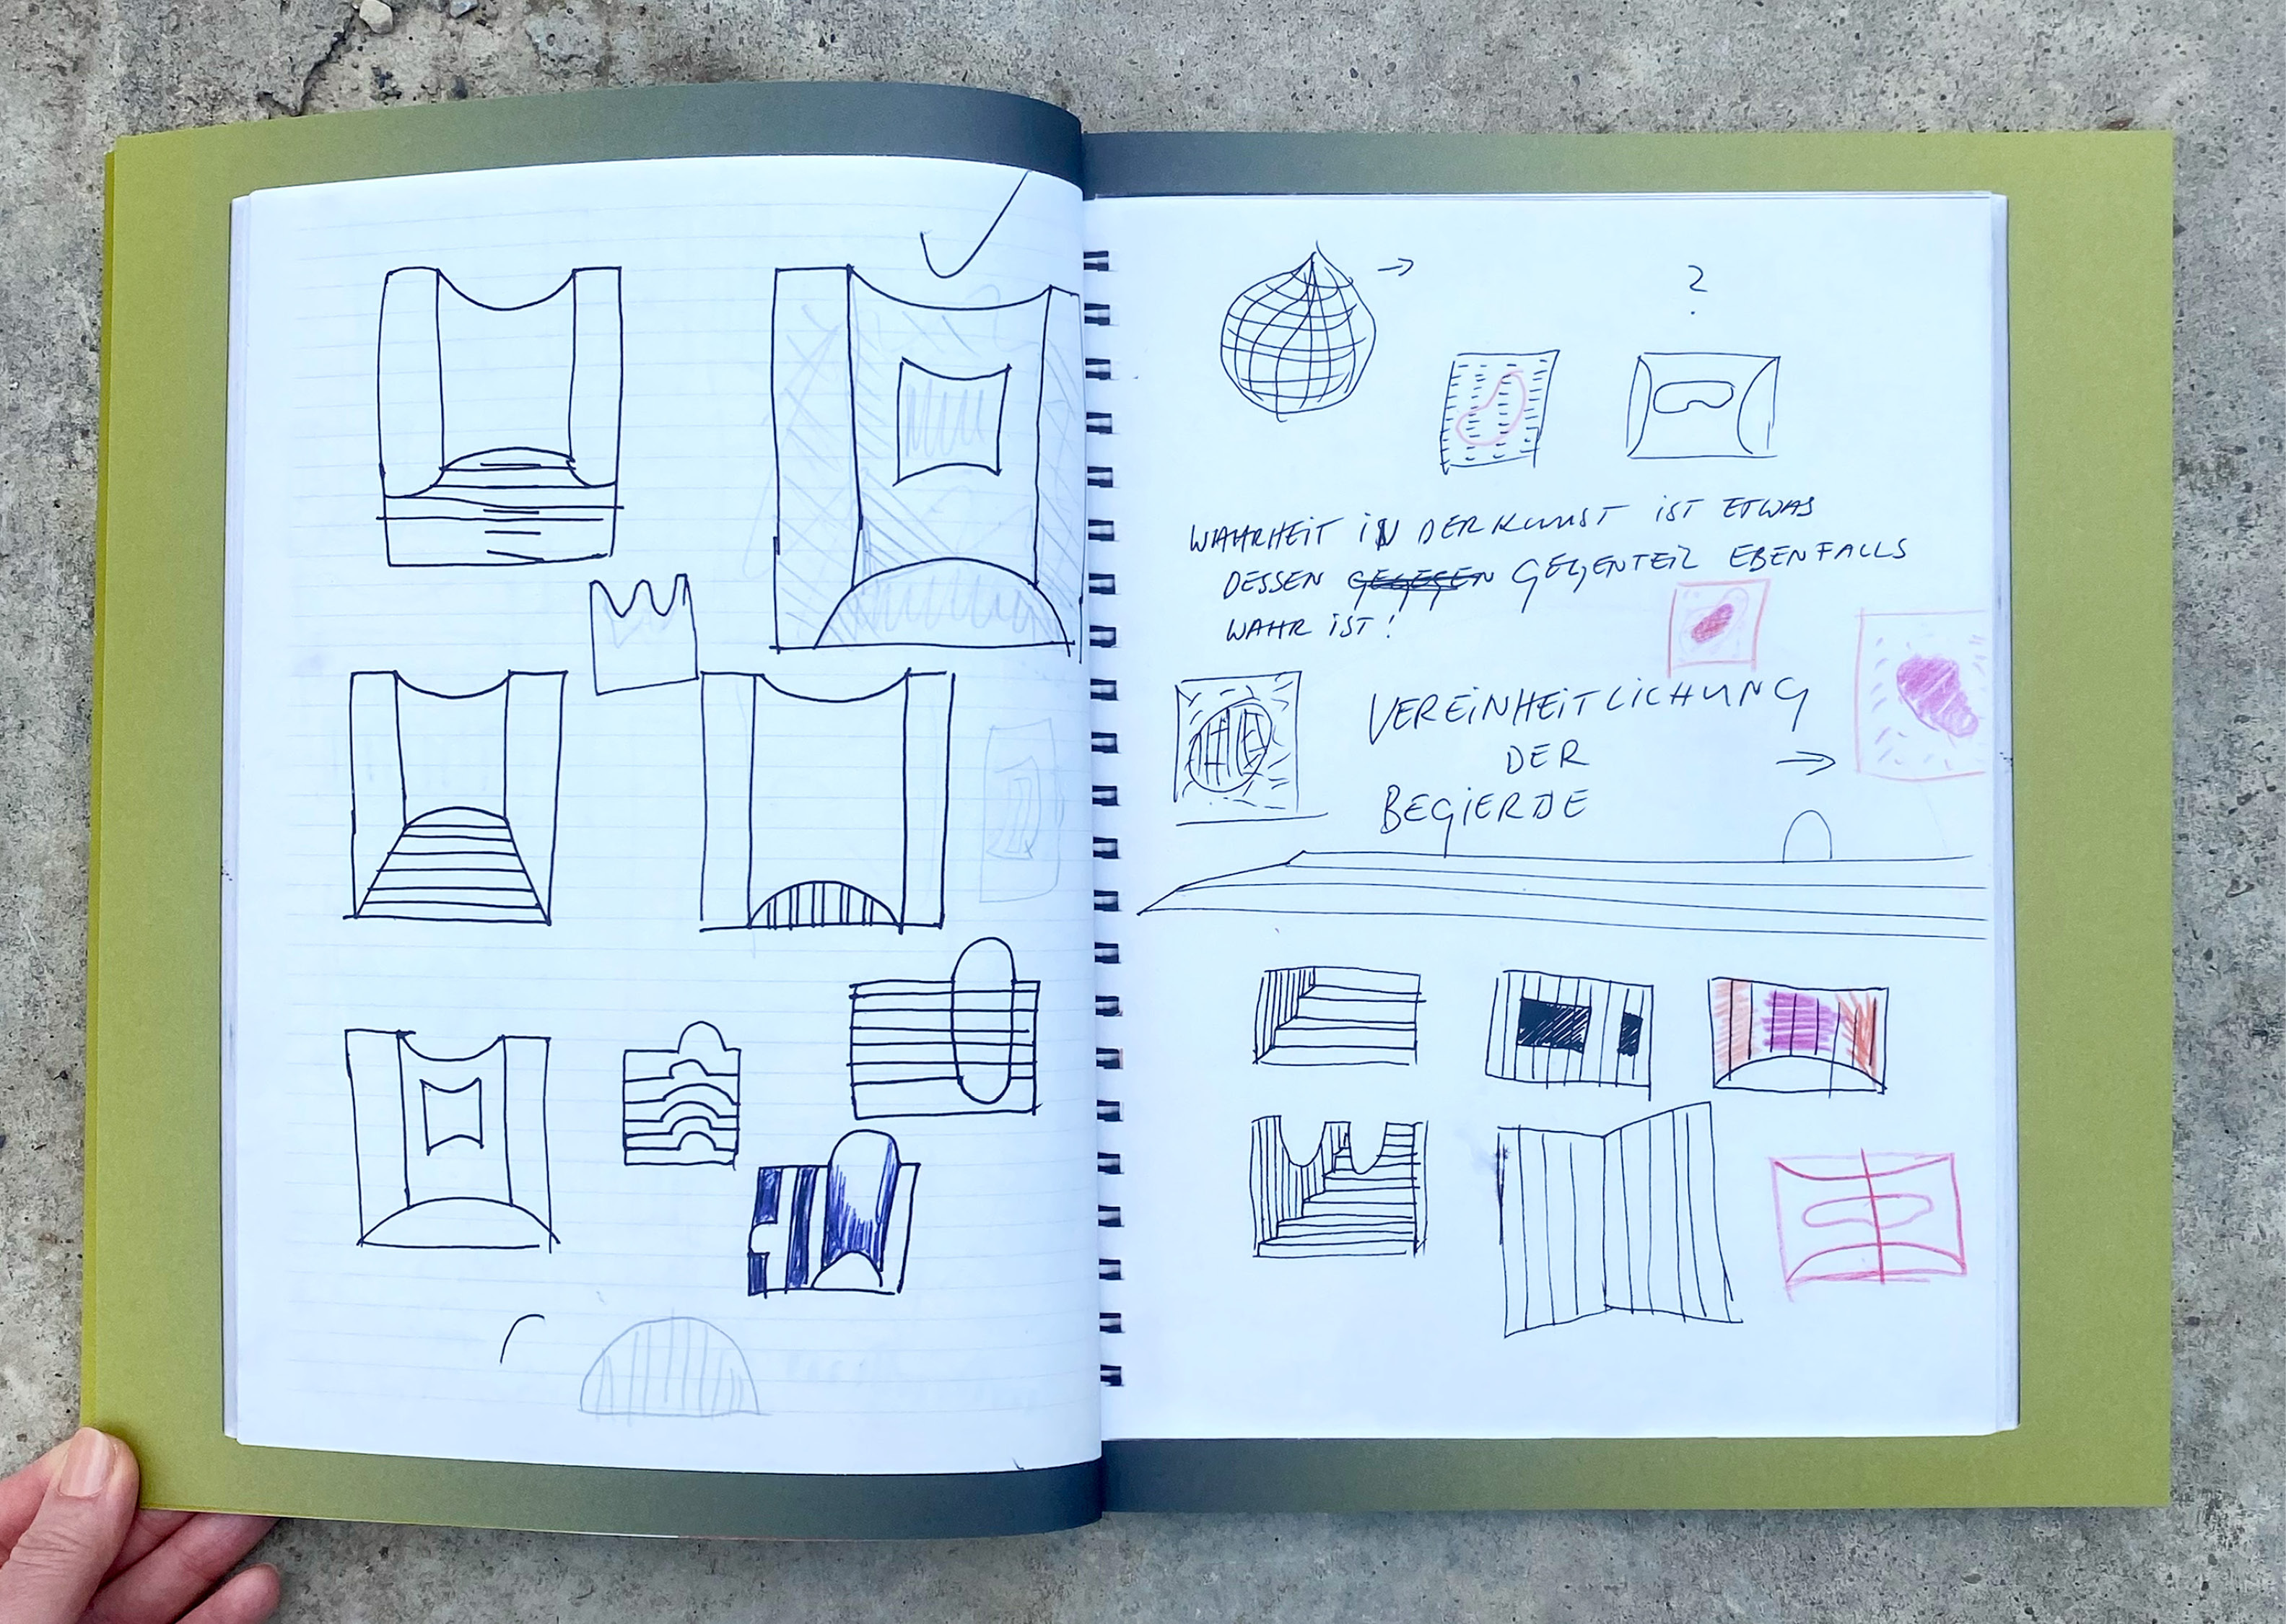 ?
WAHRHEIT IN DER KUNST IST ETWAS
DESSEN GEGEGEN GEGENTEIL EBENFALLS
WAHR IST!
VEREINHEITLICHUNG
DER
BEGIERDE